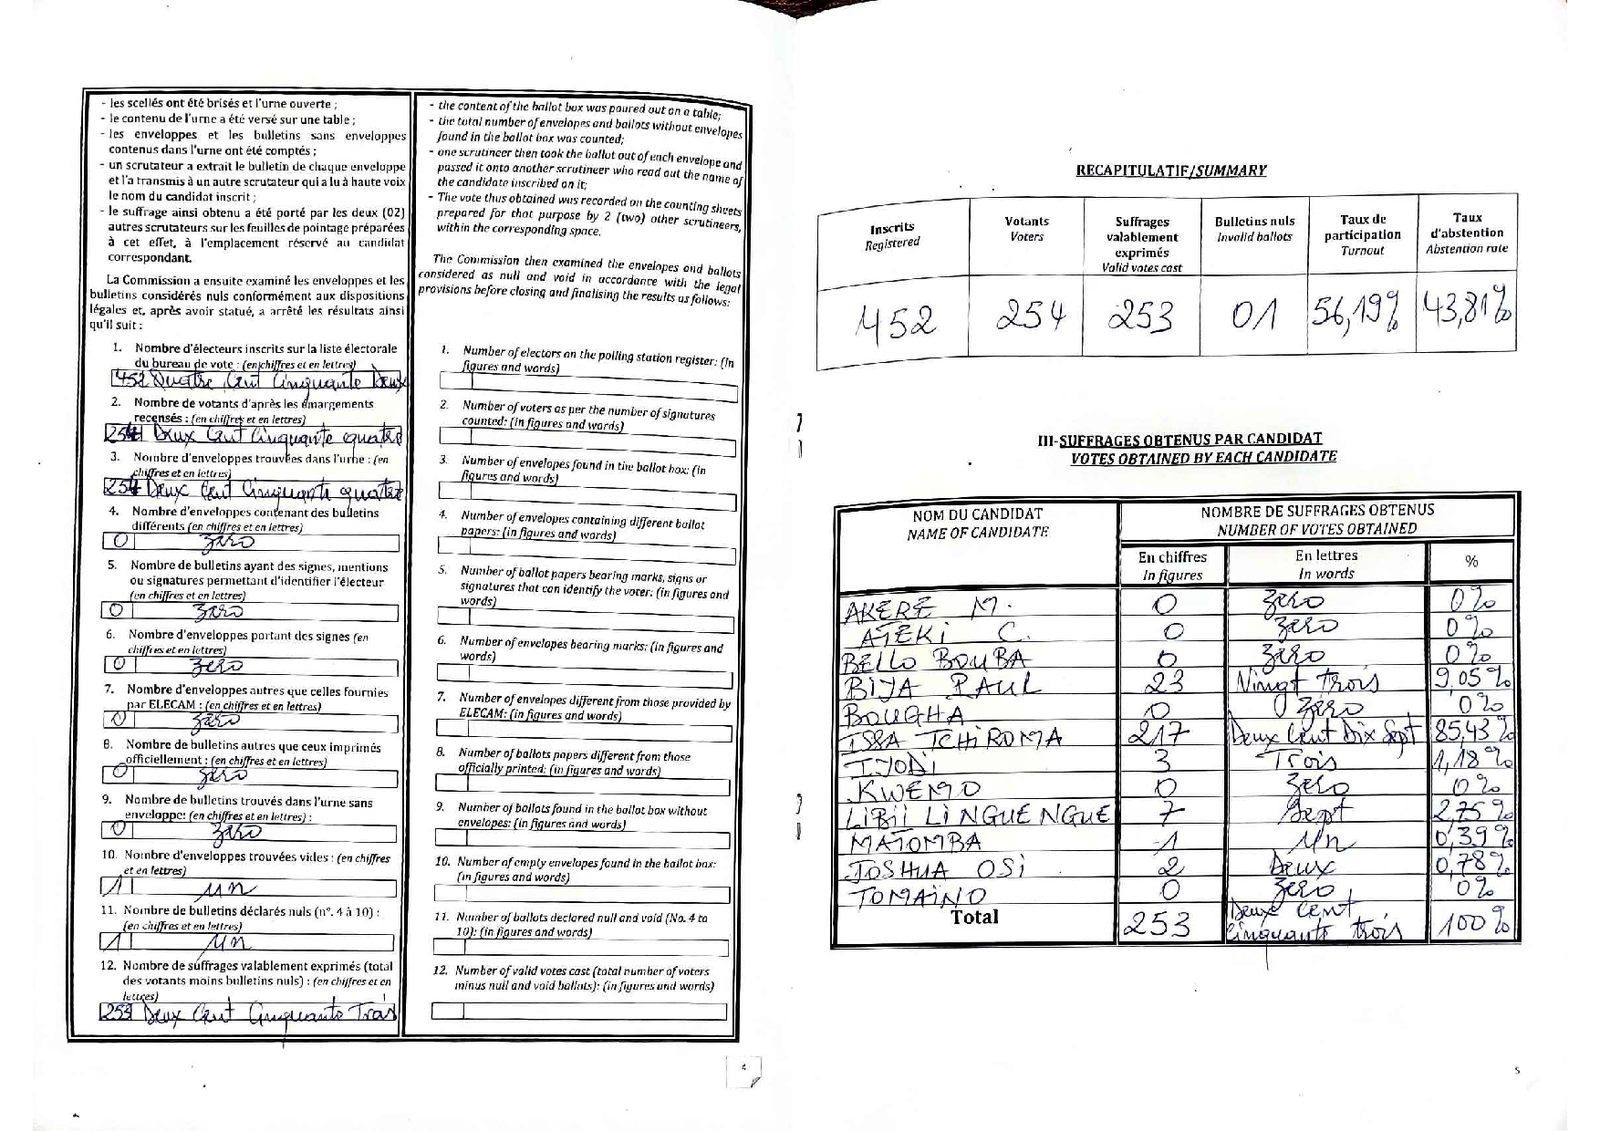 - les scellés ont été brisés et l'urne ouverte ;
- le contenu de l'urne a été versé sur une table ;
- les enveloppes et les bulletins sans enveloppes
contenus dans l'urne ont été comptés ;
- un scrutateur a extrait le bulletin de chaque enveloppe
et l'a transmis à un autre scrutateur qui a lu à haute voix
le nom du candidat inscrit ;
- le suffrage ainsi obtenu a été porté par les deux (02)
autres scrutateurs sur les feuilles de pointage préparées
à cet effet, à l'emplacement réservé au candidat
correspondant.
La Commission a ensuite examiné les enveloppes et les
bulletins considérés nuls conformément aux dispositions
légales et, après avoir statué, a arrêté les résultats ainsi
qu'il suit :
1. Nombre d'électeurs inscrits sur la liste électorale
du bureau de vote : (en chiffres et en lettres)
452 Quatre Cent Cinquante Deux
2. Nombre de votants d'après les émargements
recensés : (en chiffres et en lettres)
254 Deux Cent Cinquante quatre
3. Nombre d'enveloppes trouvées dans l'urne : (en
chiffres et en lettres)
254 Deux Cent Cinquante quatre
4. Nombre d'enveloppes contenant des bulletins
différents (en chiffres et en lettres)
0 zéro
5. Nombre de bulletins ayant des signes, mentions
ou signatures permettant d'identifier l'électeur
(en chiffres et en lettres)
0 zéro
6. Nombre d'enveloppes portant des signes (en
chiffres et en lettres)
0 zéro
7. Nombre d'enveloppes autres que celles fournies
par ELECAM : (en chiffres et en lettres)
0 zéro
8. Nombre de bulletins autres que ceux imprimés
officiellement : (en chiffres et en lettres)
0 zéro
9. Nombre de bulletins trouvés dans l'urne sans
enveloppe: (en chiffres et en lettres) :
0 zéro
10. Nombre d'enveloppes trouvées vides : (en chiffres
et en lettres)
1 un
11. Nombre de bulletins déclarés nuls (n°. 4 à 10) :
(en chiffres et en lettres)
1 un
12. Nombre de suffrages valablement exprimés (total
des votants moins bulletins nuls) : (en chiffres et en
lettres)
253 Deux Cent Cinquante Trois
- the content of the ballot box was poured out on a table;
- the total number of envelopes and ballots without envelopes
found in the ballot box was counted;
- one scrutineer then took the ballot out of each envelope and
passed it onto another scrutineer who read out the name of
the candidate inscribed on it;
- The vote thus obtained was recorded on the counting sheets
prepared for that purpose by 2 (two) other scrutineers,
within the corresponding space.
The Commission then examined the envelopes and ballots
considered as null and void in accordance with the legal
provisions before closing and finalising the results as follows:
1. Number of electors on the polling station register: (in
figures and words)
2. Number of voters as per the number of signatures
counted: (in figures and words)
3. Number of envelopes found in the ballot box: (in
figures and words)
4. Number of envelopes containing different ballot
papers: (in figures and words)
5. Number of ballot papers bearing marks, signs or
signatures that can identify the voter: (in figures and
words)
6. Number of envelopes bearing marks: (in figures and
words)
7. Number of envelopes different from those provided by
ELECAM: (in figures and words)
8. Number of ballots papers different from those
officially printed: (in figures and words)
9. Number of ballots found in the ballot box without
envelopes: (in figures and words)
10. Number of empty envelopes found in the ballot box:
(in figures and words)
11. Number of ballots declared null and void (No. 4 to
10): (in figures and words)
12. Number of valid votes cast (total number of voters
minus null and void ballots): (in figures and words)
4
RECAPITULATIF/SUMMARY
Inscrits Registered | Votants Voters | Suffrages valablement exprimés Valid votes cast | Bulletins nuls Invalid ballots | Taux de participation Turnout | Taux d'abstention Abstention rate
452 254 253 01 56,19% 43,81%
III-SUFFRAGES OBTENUS PAR CANDIDAT
VOTES OBTAINED BY EACH CANDIDATE
NOM DU CANDIDAT NOMBRE DE SUFFRAGES OBTENUS
NAME OF CANDIDATE NUMBER OF VOTES OBTAINED
En chiffres En lettres %
In figures In words
AKERE M. 0 zéro 0%
ATEKI C. 0 zéro 0%
BELLO BOUBA 0 zéro 0%
BIYA PAUL 23 Vingt trois 9,05%
BOUGHA 0 zéro 0%
ISSA TCHIROMA 217 Deux Cent Dix Sept 85,43%
IYODI 3 Trois 1,18%
KWEMO 0 zéro 0%
LIBII LI NGUE NGUE 7 Sept 2,75%
MATOMBA 1 un 0,39%
JOSHUA OSI 2 Deux 0,78%
TOMAINO 0 zéro 0%
Total 253 Deux Cent Cinquante trois 100%
5